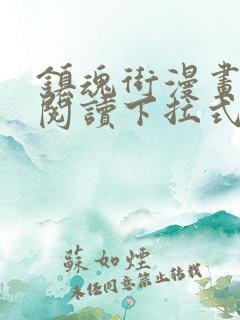 鎮魂街漫畫
閱讀下拉式
蘇如煙
未經同意禁止轉載